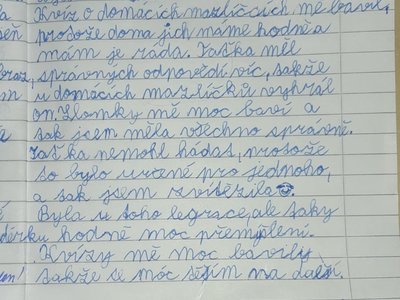 a Kvíz o domácích mazlíčcích mě bavil,
eň protože doma jich máme hodně a
mám je ráda. Taťka měl
braz, správných odpovědí víc, takže
m u domácích mazlíčků vyhrál
on. Zlomky mě moc baví a
a tak jsem měla všechno správně.
Taťka nemohl hádat, protože
to bylo určené pro jednoho,
a tak jsem zvítězila
Byla u toho legrace, ale taky
hodně moc přemýšlení.
Kvízy mě moc bavily,
takže se moc těším na další.